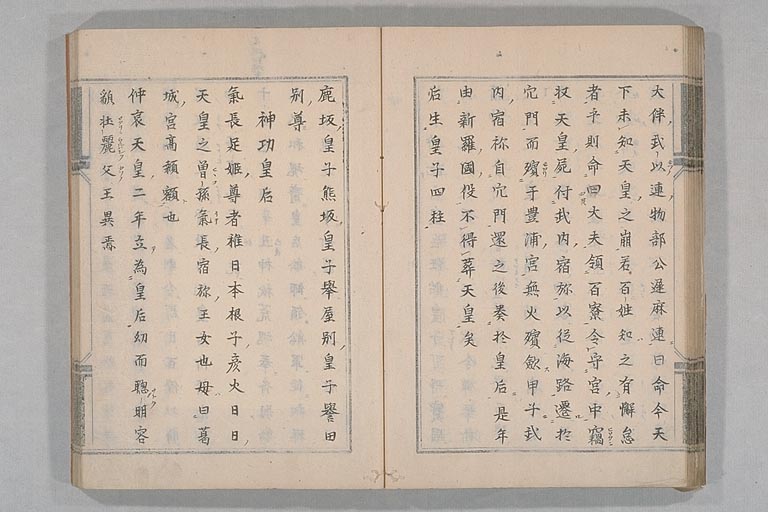 大伴武以連物部公遲麻連曰命今天
下未知天皇之崩若百姓知之有懈怠
者乎則命四大夫領百寮令守宮中竊
收天皇屍付武内宿祢以從海路遷於
穴門而殯于豊浦宮無火殯斂甲子武
内宿祢自穴門還之後奏於皇后是年
由新羅國役不得葬天皇矣
后生皇子四柱
麂坂皇子熊坂皇子舉屋別皇子譽田
別尊
神功皇后
氣長足姬尊者稚日本根子彦火日日
天皇之曽孫氣長宿祢王女也母曰葛
城宮高額顙也
仲哀天皇二年立為皇后幼而聰明容
顔壮麗父王異焉